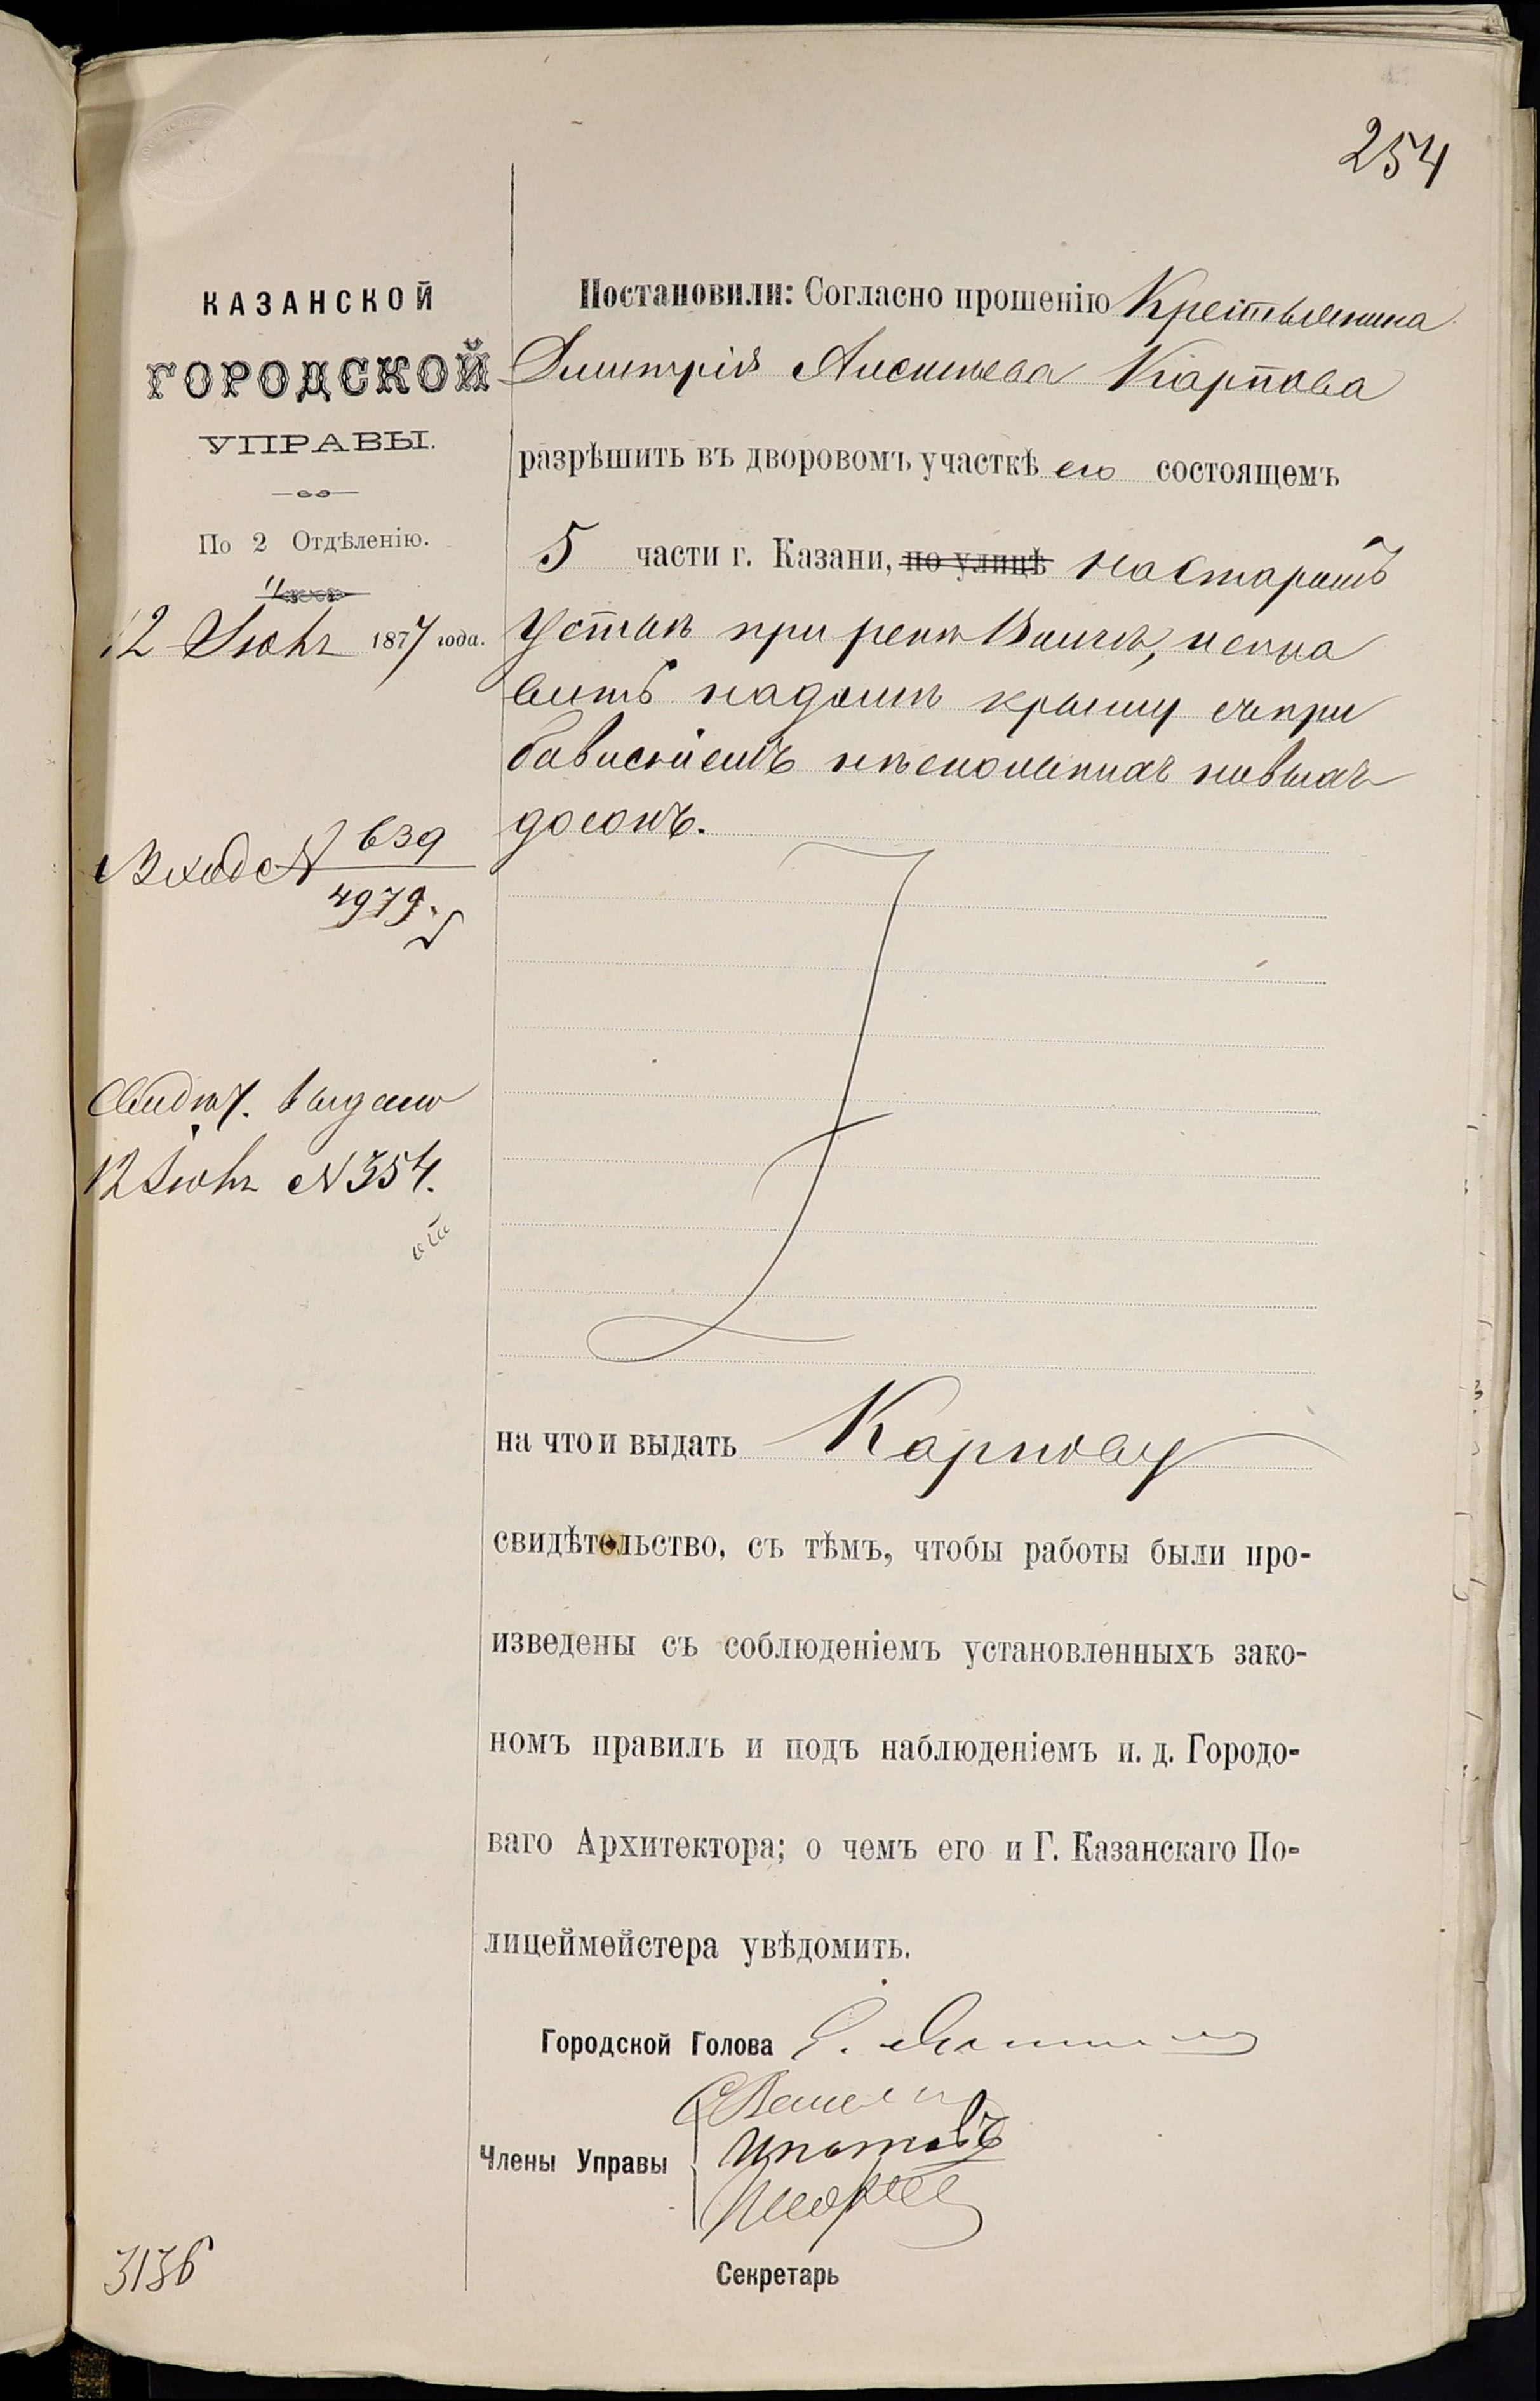 254
КАЗАНСКОЙ
ГОРОДСКОЙ
УПРАВЫ.
По 2 Отдѣленію.
12 Іюня 1877 года.
Входе № 639
4979.
Свидѣт. выдано
12 Іюня № 354.
3136
Постановили: Согласно прошенію Крестьянина
Дмитрія Карпова
разрѣшить въ дворовомъ участкѣ его состоящемъ
5 части г. Казани, по улицѣ на старомъ
Устьѣ при рекѣ, испра
вить на домѣ крышу съ при
бавленіемъ нѣсколькихъ новыхъ
досокъ.
на что и выдать Карпову
свидѣтельство, съ тѣмъ, чтобы работы были про-
изведены съ соблюденіемъ установленныхъ зако-
номъ правилъ и подъ наблюденіемъ и. д. Городо-
ваго Архитектора; о чемъ его и Г. Казанскаго По-
лицеймейстера увѣдомить.
Городской Голова
Члены Управы
Ипатовъ
Секретарь